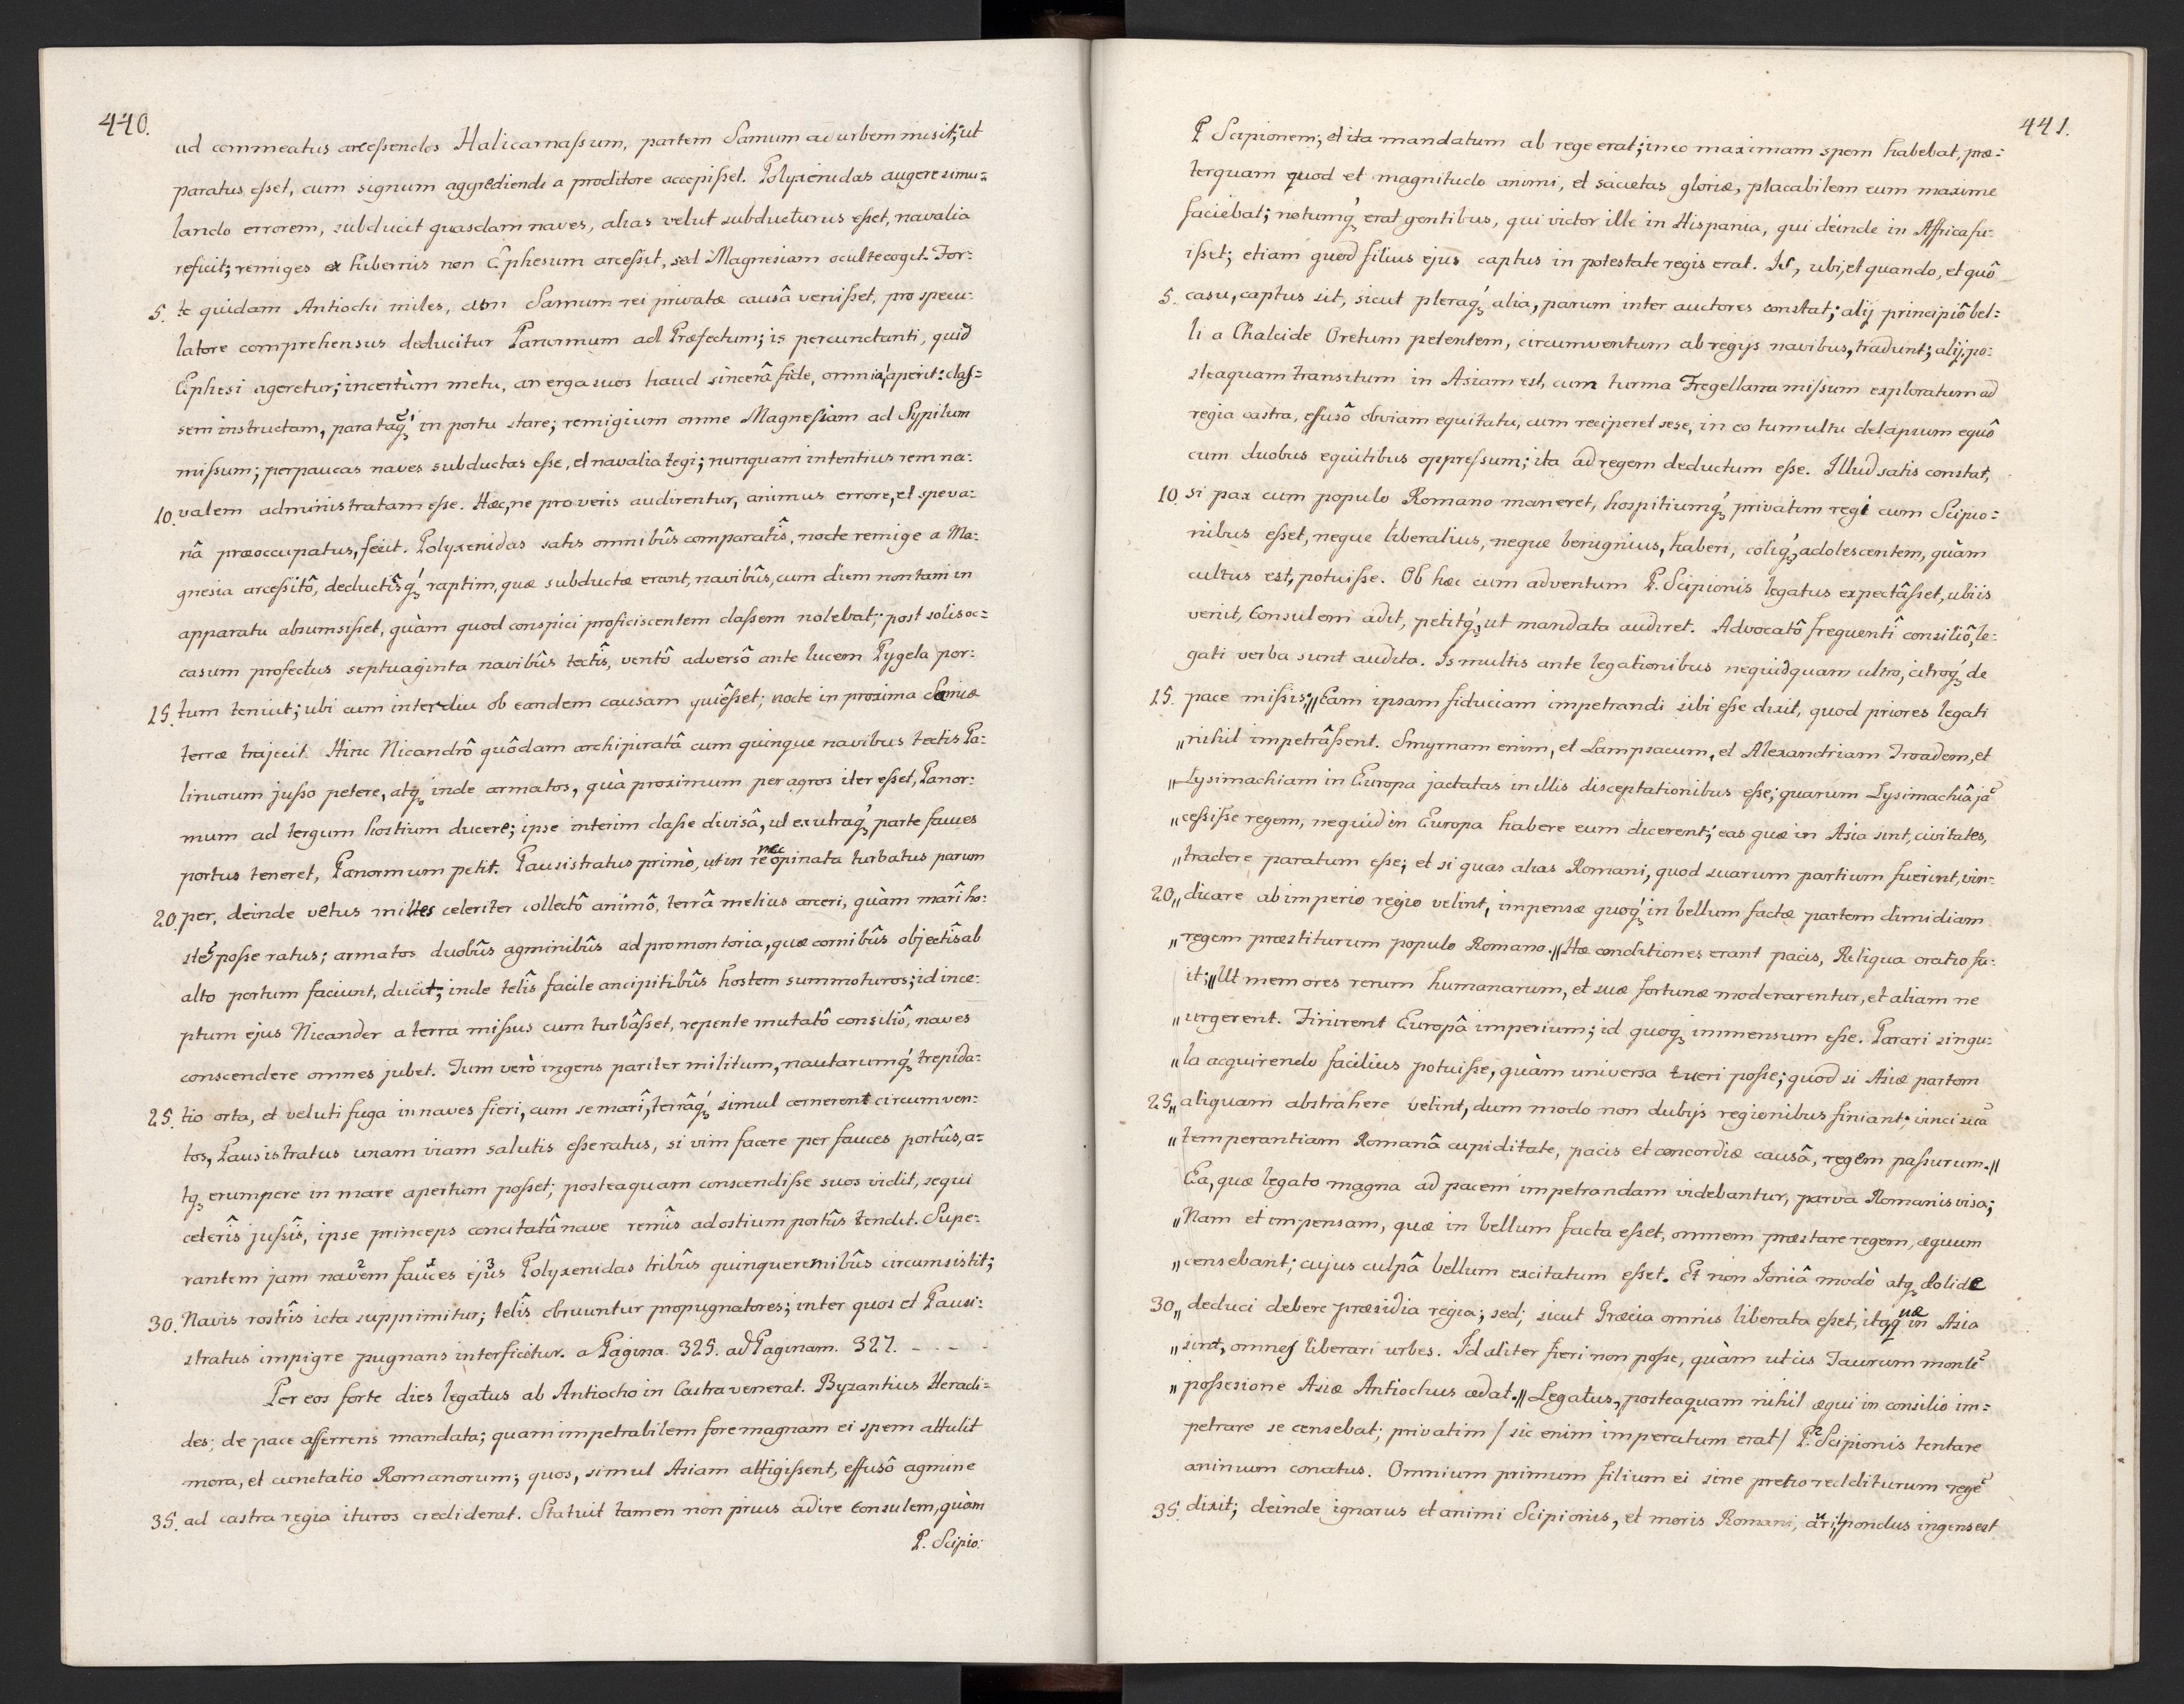 440.
ad commeatus arcessendos Halicarnassum, partem Samum ad urbem misit; ut
paratus esset, cum signum aggrediendi a proditore accepisset. Polyxenidas augere simu=
lando errorem, subducit quasdam naves, alias velut subducturus esset, navalia
reficit; remiges ex hibernis non Ephesum arcessit, sed Magnesiam oculte cogit. For=
5. te quidam Antiochi miles, cum Samum rei privatæ causâ venisset, pro specu=
latore comprehensus deducitur Panormum ad Præfectum; is percunctanti, quid
Ephesi ageretur; incertùm metu, an erga suos haud sincerâ fide, omnia aperit: clas=
sem instructam, paratāq́ꝫ in portu stare; remigium omne Magnesiam ad Sypilum
missum; perpaucas naves subductas esse, et navalia tegi; nunquam intentius rem na=
10. valem administratam esse. Hæc, ne pro veris audirentur, animus errore, et spe va=
nâ præoccupatus, fecit. Polyxenidas satis omnibûs comparatîs, nocte remige a Ma=
gnesia arcessitô, deductîsq́ꝫ raptim, quæ subductæ erant, navibûs, cum diem non tam in
apparatu absumsisset, quàm quod conspici proficiscentem classem nolebat; post solis oc=
casum profectus septuaginta navibûs tectîs, ventô adversô ante lucem Pygela por=
15. tum tenuit; ubi cum interdiu ob eandem causam quiêsset; nocte in proxima Samiæ
terræ trajecit. Hinc Nicandrô quôdam archipiratâ cum quinque navibus tectis Pa=
linurum jusso petere, atqꝫ inde armatos, quà proximum per agros iter esset, Panor=
mum ad tergum hostium ducere; ipse interim classe divisâ, ut ex utraq́ꝫ parte fauces
portus teneret, Panormum petit. Pausistratus primò, ut in re necopinata turbatus parum
20. per, deinde vetus miles celeriter collectô animô, terrâ melius arceri, quàm marî ho=
stes posse ratus; armatos duobûs agminibûs ad promontoria, quæ cornibûs objectîs ab
alto portum faciunt, ducit; inde telîs facile ancipitibûs hostem summoturos; id ince=
ptum ejus Nicander a terra missus cum turbâsset, repente mutatô consiliô, naves
conscendere omnes jubet. Tum verò ingens pariter militum, nautarumq́ꝫ trepida=
25. tio orta, et veluti fuga in naves fieri, cum se marî, terrâq́ꝫ simul cernerent circumven=
tos, Pausistratus unam viam salutis esse ratus, si vim facere per fauces portûs, a=
tqꝫ erumpere in mare apertum posset; posteaquam conscendisse suos vidit, sequi
ceterîs jussîs, ipse princeps concitatâ nave remîs ad ostium portûs tendit. Supe=
rantem jam navem fauces ejus Polyxenidas tribûs quinqueremibûs circumsistit;
30. Navis rostrîs icta supprimitur; telîs obruuntur propugnatores; inter quos et Pausi=
stratus impigre pugnans interficitur. a Pagina. 325. ad Paginam. 327. - - - -
Per eos forte dies legatus ab Antiocho in Castra venerat. Byzantius Heracli=
des; de pace afferrens mandata; quam impetrabilem fore magnam ei spem attulit
mora, et cunctatio Romanorum; quos, simul Asiam attigissent, effusô agmine
35. ad castra regia ituros crediderat. Statuit tamen non prius adire Consulem, quàm
P. Scipio:
441.
P Scipionem; et ita mandatum ab rege erat; in eo maximam spem habebat, præ=
terquam quod et magnitudo animi, et sacietas gloriæ, placabilem eum maxime
faciebat; notumq́ꝫ erat gentibus, qui victor ille in Hispania, qui deinde in Affrica fu=
isset; etiam quod filius ejus captus in potestate regis erat. Is, ubi, et quando, et quô
5. casu, captus sit, sicut pleraq́ꝫ alia, parum inter auctores constat; alij principiô bel=
li a Chalcide Oretum petentem, circumventum ab regijs navibus, tradunt; alij, po=
steaquam transitum in Asiam est, cum turma Fregellana missum exploratum ad
regia castra, effusô obviam equitatu, cum reciperet sese, in eo tumultu delapsum equô
cum duobus equitibus oppressum; ita ad regem deductum esse. Illud satis constat,
10. si pax cum populo Romano maneret, hospitiumq́ꝫ privatim regi cum Scipio=
nibus esset, neque liberalius, neque benignius, haberi, coliq́ꝫ, adolescentem, quàm
cultus est, potuisse. Ob hæc cum adventum P. Scipionis legatus expectâsset, ubi is
venit, Consulem adit, petitq́ꝫ, ut mandata audiret. Advocatô frequentî consiliô, le=
gati verba sunt audita. Is multis ante legationibus nequidquam ultro, citroq́ꝫ de
15. pace missis; „Eam ipsam fiduciam impetrandi sibi esse dixit, quod priores legati
„nihil impetrâssent. Smyrnam enim, et Lampsacum, et Alexandriam Troadem, et
„Lysimachiam in Europa jactatas in illis disceptationibus esse; quarum Lysimachiâ jā
„cessisse regem, nequid in Europa habere eum dicerent; eas quæ in Asia sint, civitates,
„tradere paratum esse; et si quas alias Romani, quod suarum partium fuerint, vin=
20. „dicare ab imperio regio velint, impensæ quoq́ꝫ in bellum factæ partem dimidiam
„regem præstiturum populo Romano.„ Hæ conditiones erant pacis, Reliqua oratio fu=
it; „Ut memores rerum humanarum, et suæ fortunæ moderarentur, et aliam ne
„urgerent. Finirent Europâ imperium; id quoqꝫ immensum esse. Parari singu=
„la acquirendo facilius potuisse, quàm universa tueri posse; quod si Asiæ partem
25. „aliquam abstrahere velint, dum modo non dubijs regionibus finiant; vinci suā
„temperantiam Romanâ cupiditate, pacis et concordiæ causâ, regem passurum.„
Ea, quæ legato magna ad pacem impetrandam videbantur, parva Romanis visa;
„Nam et impensam, quæ in bellum facta esset, omnem præstare regem, æquum
„censebant; cujus culpâ bellum excitatum esset. Et non Joniâ modò atqꝫ Æolide
30. „deduci debere præsidia regia; sed; sicut Græcia omnis liberata esset, ita quæ in Asia
„sint, omnes liberari urbes. Id aliter fieri non posse, quàm ut cis Taurum montē
„possesione Asiæ Antiochus cedat.„ Legatus, posteaquam nihil æqui in consilio im=
petrare se censebat; privatim / sic enim imperatum erat / P. Scipionis tentare
animum conatus. Omnium primum filium ei sine pretio redditurum regē
35. dixit; deinde ignarus et animi Scipionis, et moris Romani, auri pondus ingens est